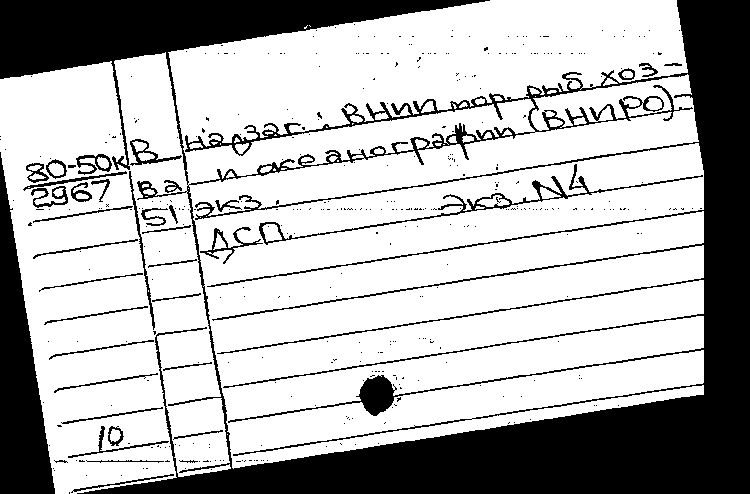 В надзаг.: ВНИИ мор. рыб. хоз-
80-50к ва и океанографии (ВНИРО)-
2967 51 экз. Экз. N4.
ДСП.
10